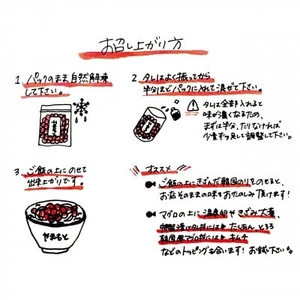 お召し上がり方
1. パックのまま自然解凍
して下さい。
2. タレはよく振ってから
半分ほどパックに入れて混ぜて下さい。
タレは全部入れると
味が濃くなるため、
まずは半分、たりなければ
少量ずつ足して調整して下さい。
3. ご飯の上にのせて
出来上がりです。
やまもと
オススメ
ご飯の上にきざんだ韓国のりをのせると、
お店そのままの味をおたのしみ頂けます!
マグロの上に温泉卵やきざみ大葉、
たくあん、とろろ
キムチ
などのトッピングも合います!お試し下さい。